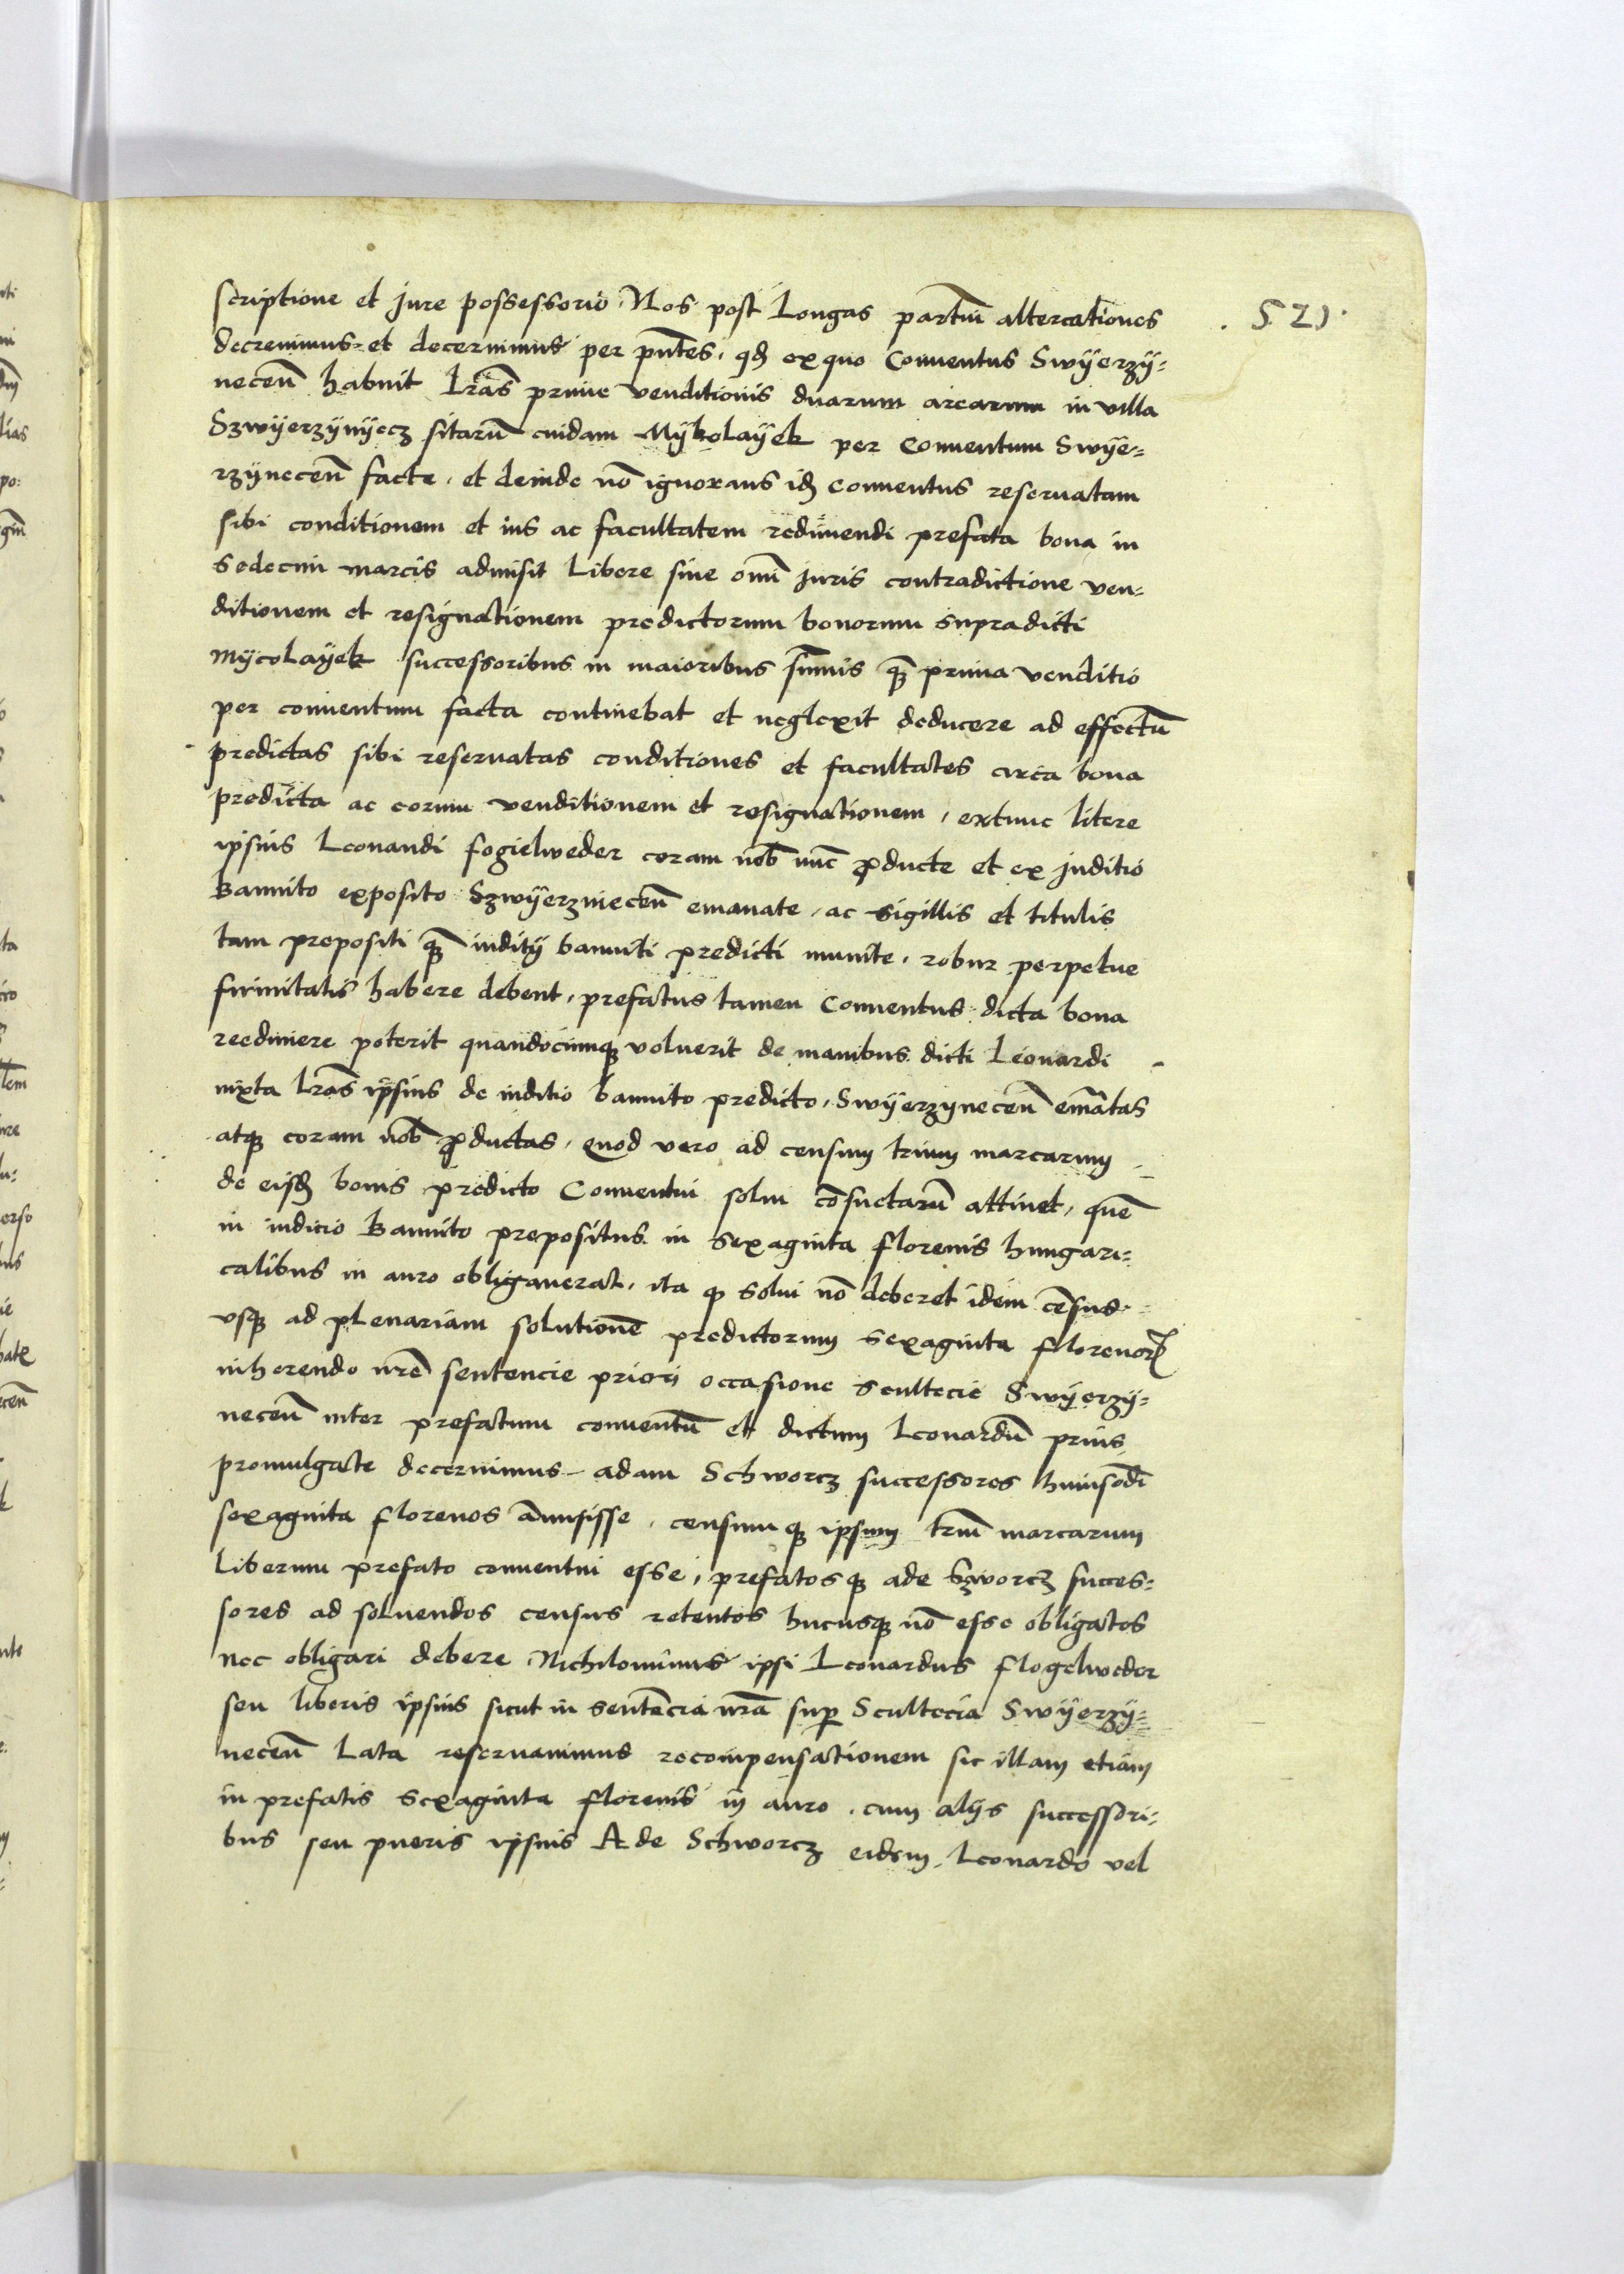 scriptione et jure possessorio. Nos post Longas partiũ altercationes
decrevimus et decernimus per pñtes, qđ ex quo Conventus Swÿerzÿ=
neceñ habuit Lrãs prime venditionis duarum arearum in villa
Szwÿerzÿnÿecz sitarũ cuidam Mÿkolaÿek per Conventum Swÿe=
rzÿneceñ facte. et deinde nõ ignorans iđ conventus reservatam
sibi conditionem et ius ac facultatem redimendi prefata bona in
sedecim marcis admisit Libere sine omĩ juris contradictione ven=
ditionem et resignationem predictorum bonorum supradicti
Mÿcolaÿek successoribus in maioribus sũmis q̃ꝫ prima venditio
per conventum facta continebat et neglexit deducere ad effectũ
predictas sibi reservatas conditiones et facultates circa bona
predicta ac eorum venditionem et resignationem, extunc litere
ipsius Leonardi fogielweder coram nob̃ nũc ꝓducte et ex juditio
Bannito exposito Szwÿerzinieceñ emanate, ac sigillis et titulis
tam prepositi q̃ꝫ inditÿ banniti predicti munite. robur perpetue
firmitatis habere debent, prefatus tamen Conventus dicta bona
reedimere poterit quandocumqꝫ voluerit de manibus dicti Leonardi
iuxta Lrãs ipsius de iuditio bannito predicto, Swÿerzyneceñ emãtas
atqꝫ coram nob̃ ꝓductas. Quod vero ad censum trium marcarum
de eisđ bonis predicto Conventui solui cõsuetarũ attinet, quẽ
in indicio Bannito prepositus in sexaginta florenis hungari=
calibus in auro obligaverat. ita ꝙ solui nõ deberet idem cẽsus
vsqꝫ ad plenariam solutionẽ predictorum sexaginta florenorꝝ
inherendo nrẽ sentencie priori occasione scultecie Swÿerzÿ=
neceñ inter prefatum conventũ et dictum Leonardũ prius
promulgate decernimus adam Schworcz successores huiusõdi
sexaginta florenos ãmisisse. censumqꝫ ipsum triũ marcarum
Liberum prefato conventui esse, prefatosqꝫ ade Szworcz succes=
sores ad soluendos census retentos hucusqꝫ nõ esse obligatos
nec obligari debere. Nichilominus ipsi Leonardus flogelweder
seu liberis ipsius sicut in sentẽcia nrã suꝑ Scultecia Swÿerzÿ=
neceñ Lata reservavimus recompensationem sic illam etiam
in prefatis sexaginta florenis in auro. cum alijs successori=
bus seu pueris ipsius Ade Schworcz eidem Leonardo vel
. 521.